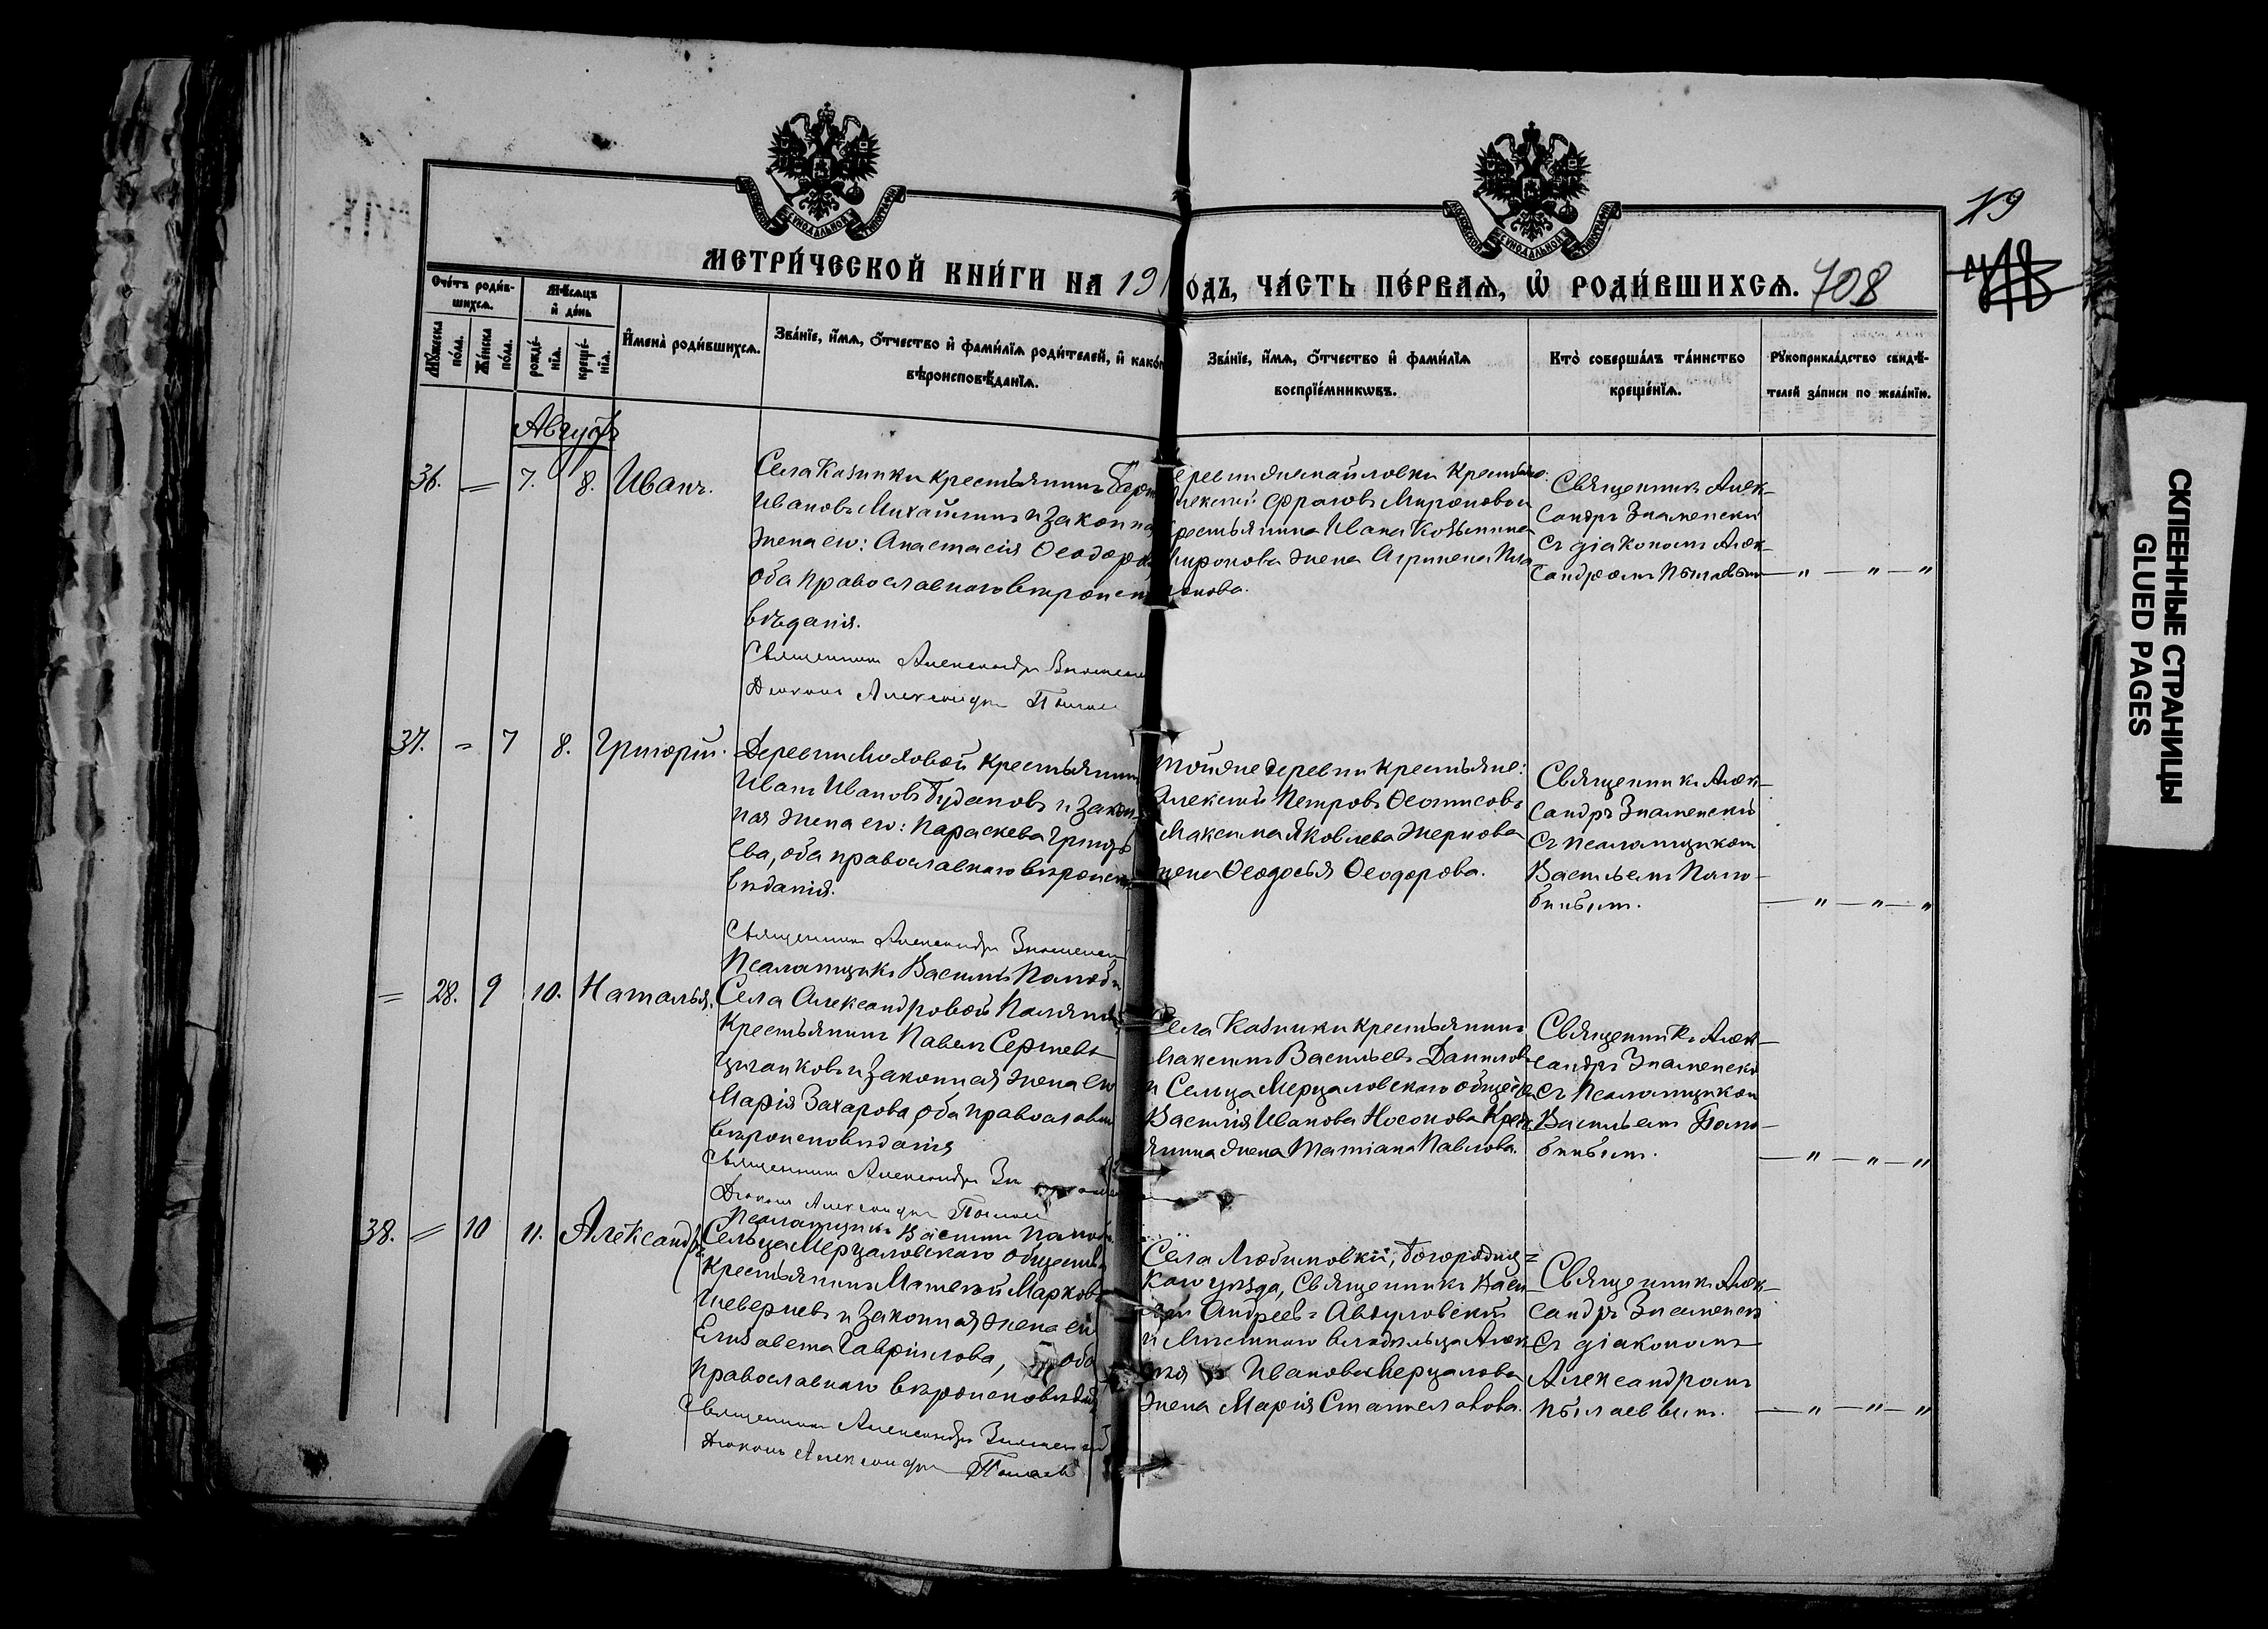 МОСКОВСКОЙ СУНОДАЛЬНОЙ ТИПОГРАФІИ
МОСКОВСКОЙ СУНОДАЛЬНОЙ ТИПОГРАФІИ
МЕТРИ́ЧЕСКОЙ КНИ́ГИ НА 191
ОДЪ, ЧА́СТЬ ПЕ́РВАѦ, Ѡ҆ РОДИ́ВШИХСѦ. 708
19
Сче́тъ роди́в-
шихсѧ.
Мꙋ́жеска
по́ла.
Же́нска
по́ла.
Мѣ́сѧцъ
и҆ де́нь
рожде́-
нїѧ.
креще́-
нїѧ.
И҆мена̀ роди́вшихсѧ.
Зва́нїе, и҆́мѧ, ѻ҆́тчество и҆ фами́лїѧ роди́телей, и҆ како́г
вѣроисповѣ́данїѧ.
Зва́нїе, и҆́мѧ, ѻ҆́тчество и҆ фами́лїѧ
воспрїе́мникѡвъ.
Кто̀ соверша́лъ та́инство
креще́нїѧ.
Рꙋкоприкла́дство свидѣ́-
телей за́писи по жела́нїю.
Августъ
36. — 7. 8. Иванъ.
Села Казинки крестьянинъ
Ивановъ Михайлинъ и законная
жена его: Анастасія Ѳеодоро
оба православнаго вѣроиспо
вѣданія.
Священникъ Александръ Знаменск
Діаконъ Александръ Пылае
еревни Измайловки крестьяне:
Алексій Фроловъ Мироновъ и
крестьянина Ивана Козьмина
Миронова жена Агрипена Пла
онова.
Священникъ Алек-
сандръ Знаменскій
съ діакономъ Алек-
сандромъ Пылаевым
— " — " — "
37. = 7 8. Григорій.
Деревни Моховой крестьянинъ
Иванъ Ивановъ Будановъ и закон-
ная жена его: Параскева Григорь
ева, оба православнаго вѣроиспо
вѣданія.
Священникъ Александръ Знаменск
Псаломщикъ Василій
той же деревни крестьяне:
Алексій Петровъ Ѳеоктисовъ
Максима Яковлева Жернова
жена Ѳеодосья Ѳеодорова.
Священникъ Алек-
сандръ Знаменскій
съ псаломщикомъ
Васильемъ
— " — " — "
= 28. 9 10. Наталья.
Села Александровой Поляны
крестьянинъ Павелъ Сергѣевъ
Цыганковъ и законная жена его
Марія Захарова, оба православн
вѣроисповѣданія
Священникъ Александръ Зн
Діаконъ Александръ Пылаев
Псаломщикъ Василій
Села Казинки крестьянинъ
Максимъ Васильевъ Даниловъ
и Сельца Мерцаловскаго общества
Василія Иванова Носонова крест
янина жена Татіана Павлова.
Священникъ Алек-
сандръ Знаменскі
съ Псаломщиком
Васильемъ
— " — " — "
38. = 10 11. Александръ
Сельца Мерцаловскаго общества
крестьянинъ Матвей Марковъ
Шеверневъ и законная жена его
Елизавета Гавріилова, оба
православнаго вѣроисповѣдан
Священникъ Александръ Знаменскій
Діаконъ Александръ Пылаевъ
Села Любимовки, Богородиц=
каго уѣзда, Священникъ Васи
лій Андреевъ
и мѣстнаго владѣльца Алек
сѣя Иванова Мерцалова
жена Марія Станиславова.
Священникъ Алек-
сандръ Знаменскі
съ діакономъ
Александромъ
Пылаевымъ.
— " — " — "
СКЛЕЕННЫЕ СТРАНИЦЫ
GLUED PAGES